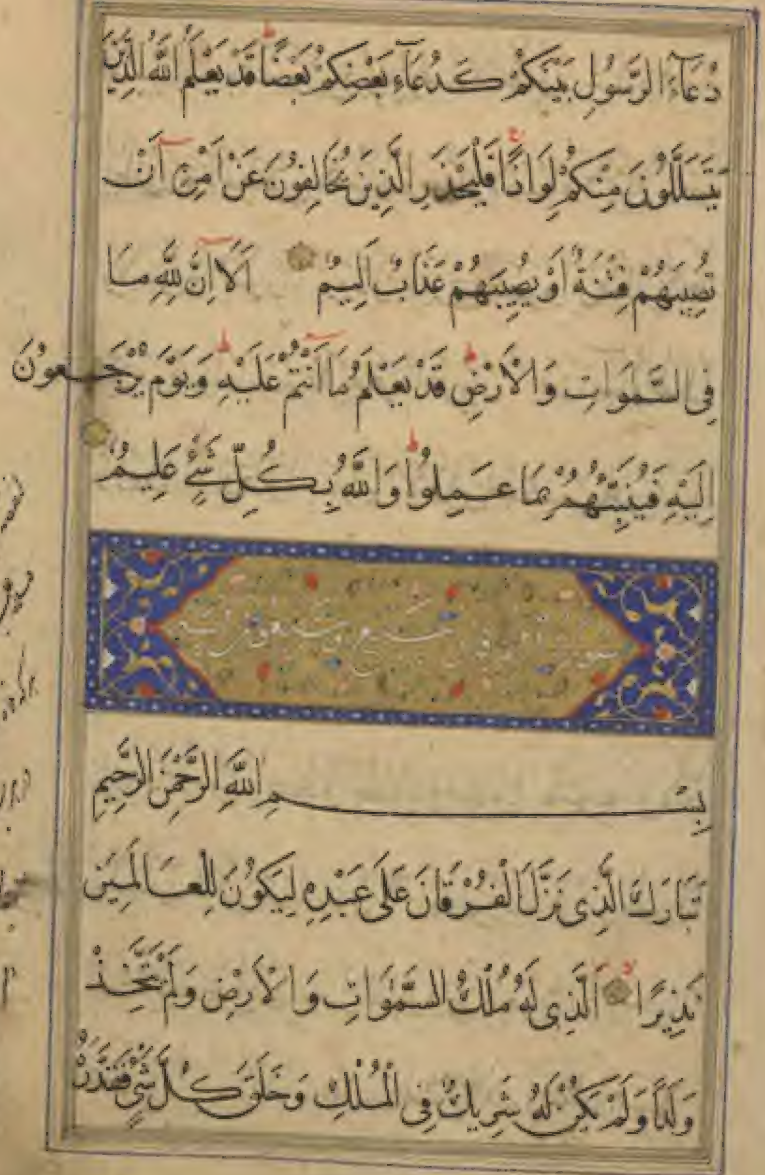 دُعَآءَ الرَّسُولِ بَيْنَكُمْ كَدُعَآءِ بَعْضِكُمْ بَعْضًا ط قَدْ يَعْلَمُ اللَّهُ الَّذِينَ
يَتَسَلَّلُونَ مِنْكُمْ لِوَاذًا ج فَلْيَحْذَرِ الَّذِينَ يُخَالِفُونَ عَنْ اَمْرِهِ اَنْ
تُصِيبَهُمْ فِتْنَةٌ اَوْ يُصِيبَهُمْ عَذَابٌ اَلِيمٌ اَلَا اِنَّ لِلَّهِ مَا
فِى السَّمٰوَاتِ وَالْاَرْضِ ط قَدْ يَعْلَمُ مَا اَنْتُمْ عَلَيْهِ ط وَيَوْمَ يُرْجَعُونَ
اِلَيْهِ فَيُنَبِّئُهُمْ بِمَا عَمِلُوا ط وَاللَّهُ بِكُلِّ شَىْءٍ عَلِيمٌ
سورة الفرقان سبع وسبعون آية
بِسْمِ اللَّهِ الرَّحْمٰنِ الرَّحِيمِ
تَبَارَكَ الَّذِى نَزَّلَ الْفُرْقَانَ عَلَى عَبْدِهِ لِيَكُونَ لِلْعَالَمِينَ
نَذِيرًا لا اَلَّذِى لَهُ مُلْكُ السَّمٰوَاتِ وَالْاَرْضِ وَلَمْ يَتَّخِذْ
وَلَدًا وَلَمْ يَكُنْ لَهُ شَرِيكٌ فِى الْمُلْكِ وَخَلَقَ كُلَّ شَىْءٍ فَقَدَّرَهُ